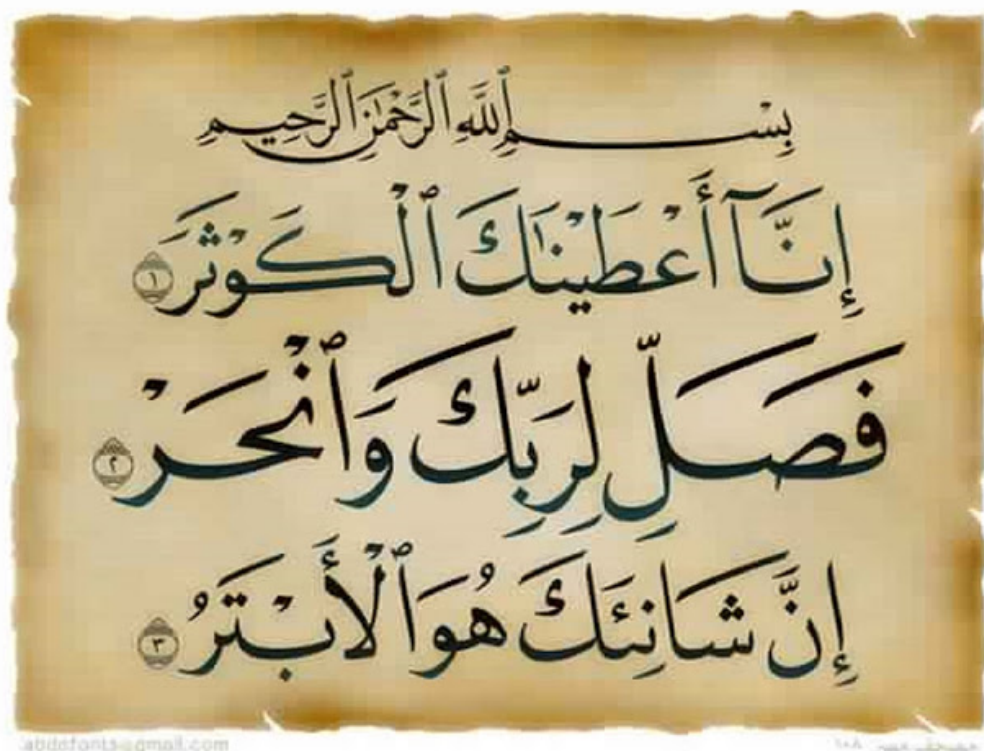 بِسْمِ ٱللَّهِ ٱلرَّحْمَٰنِ ٱلرَّحِيمِ
إِنَّآ أَعْطَيْنَٰكَ ٱلْكَوْثَرَ ١
فَصَلِّ لِرَبِّكَ وَٱنْحَرْ ٢
إِنَّ شَانِئَكَ هُوَ ٱلْأَبْتَرُ ٣
abdofonts@gmail.com
١٠٨